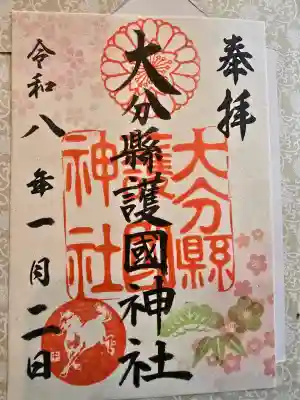 奉拝
大分縣護國神社
大分縣
護國
神社
令和八年一月二日